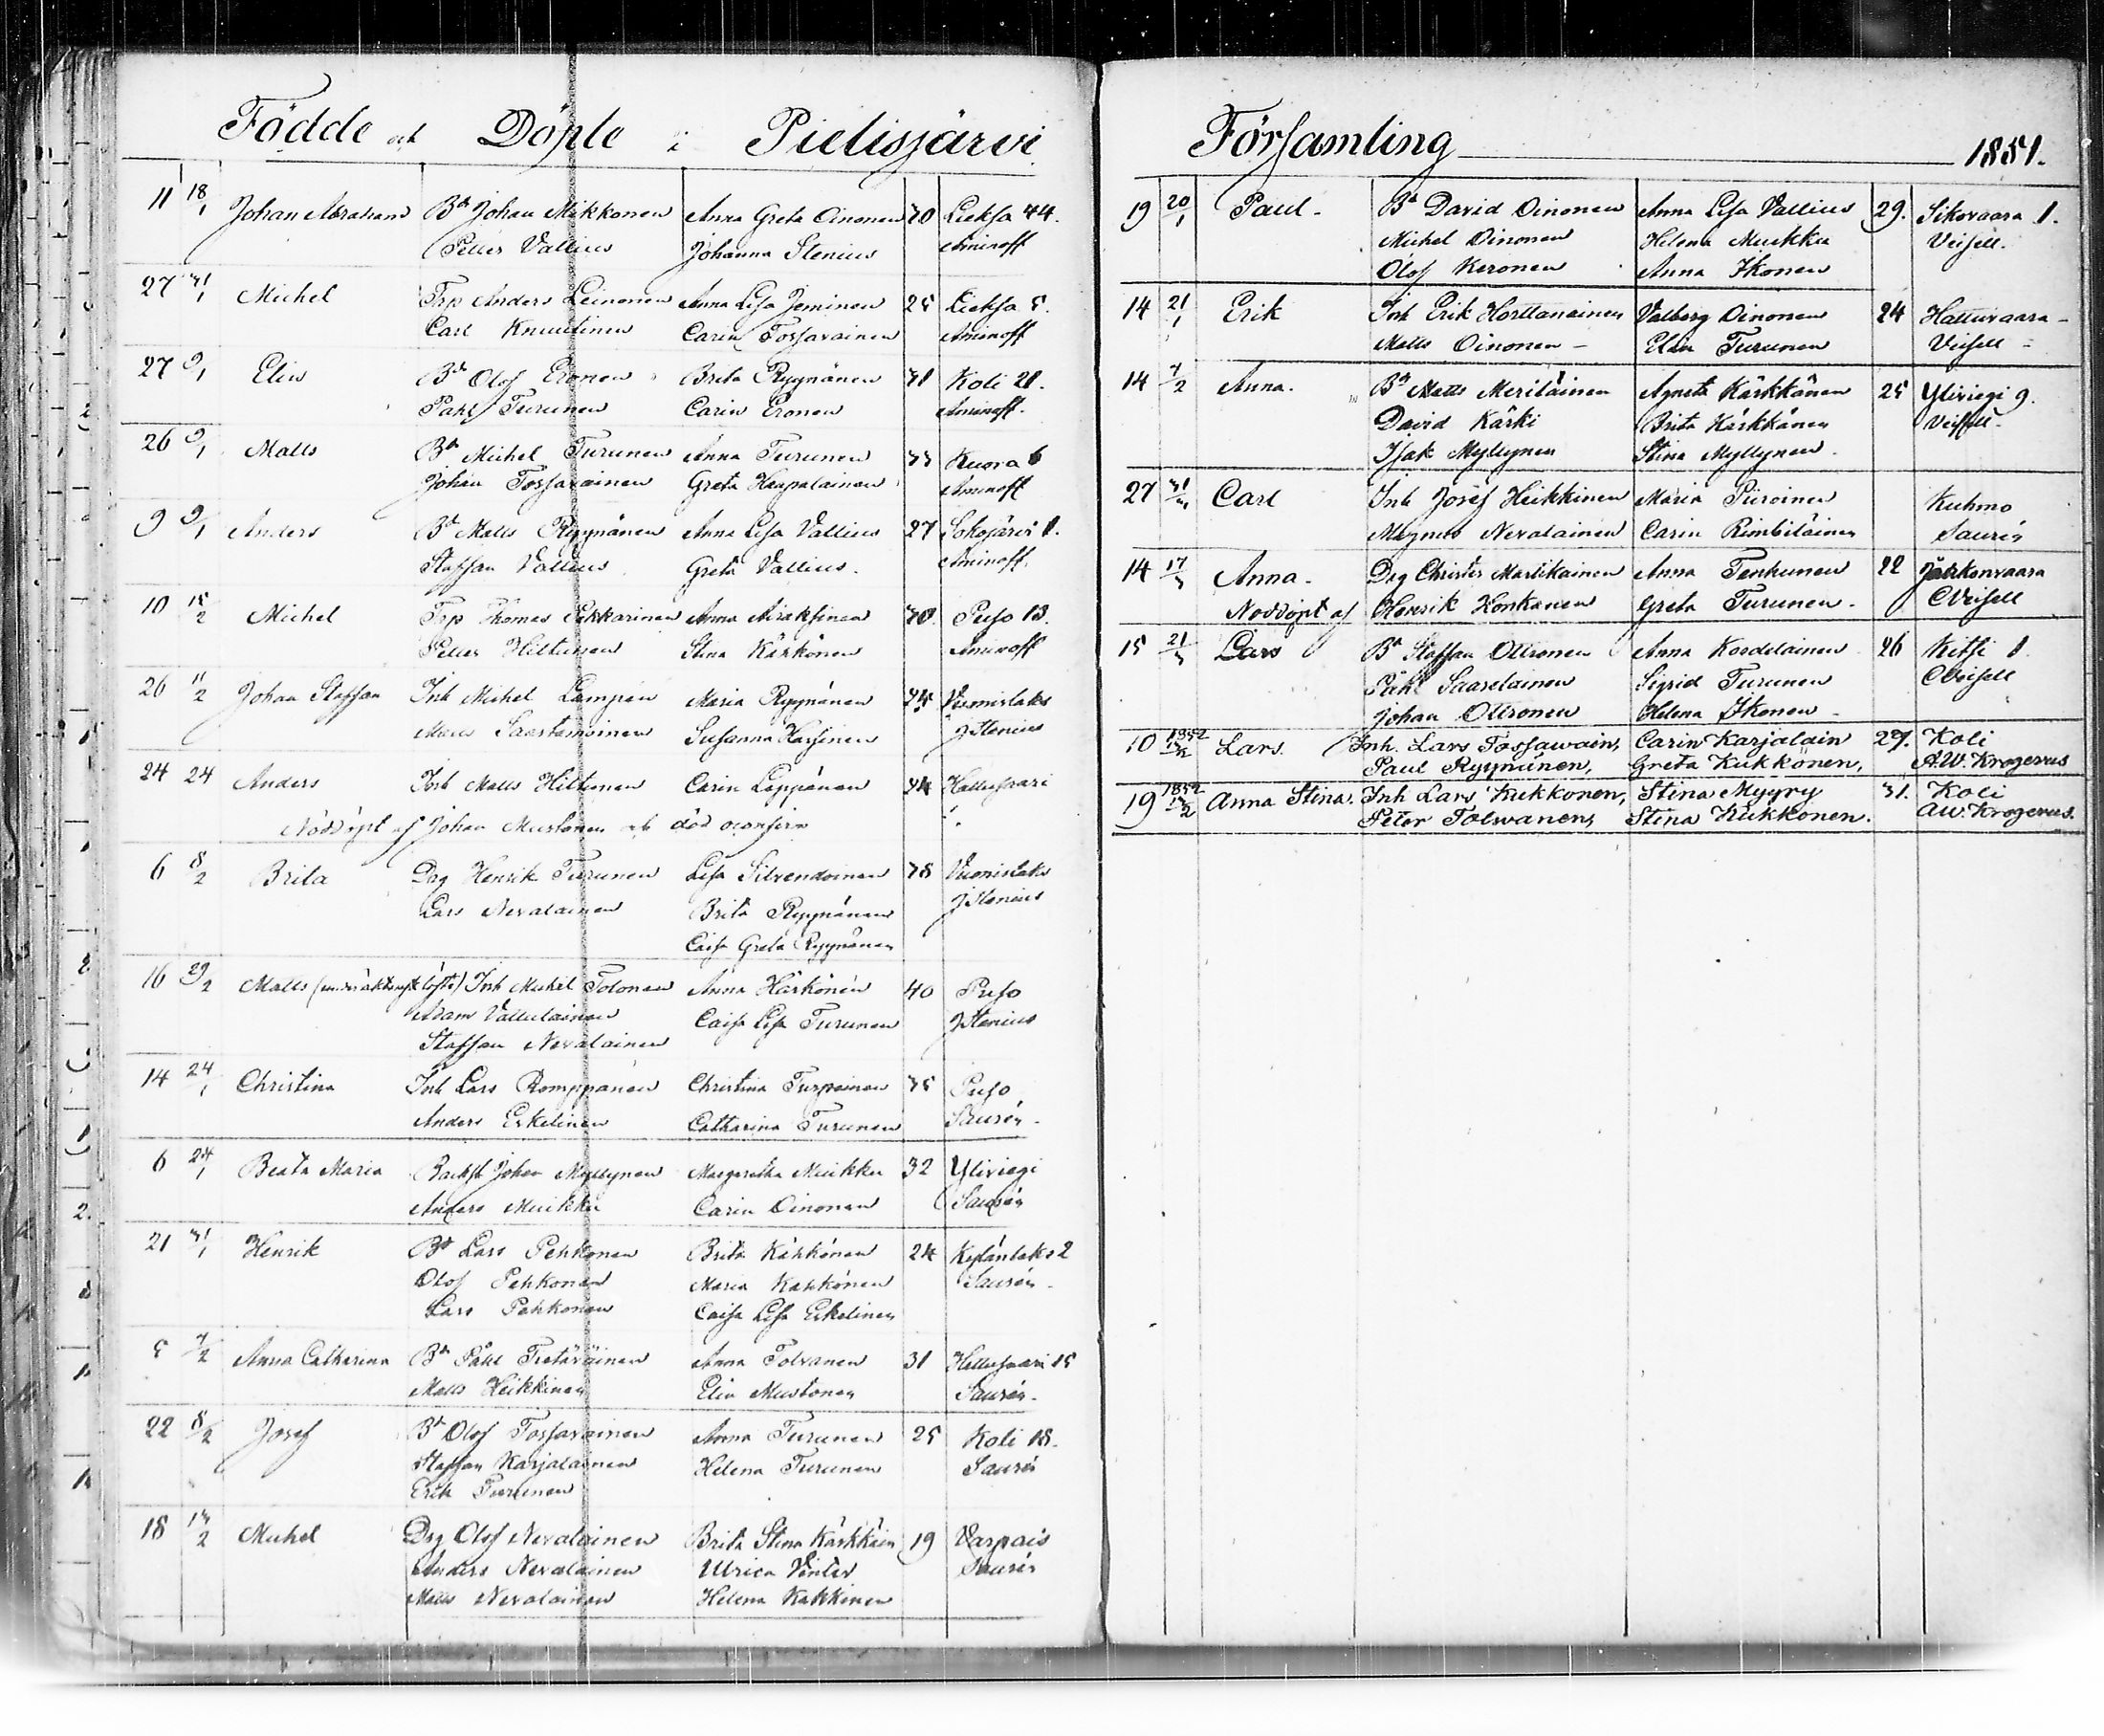 Födde och Döpte i Pielisjärvi
11 18/1 Johan Abraham Bd Johan Mikkonen Anna Greta Oinonen 30 Lieksa 44.
Petter Vallius Johanna Stenius Aminoff
27 31/1 Michel Trp Anders Leinonen Anna Lisa Jeminen 25 Lieksa 5.
Carl Knuutinen Carin Tossavainen Aminoff
27 9/1 Elin Bd Olof Eronen Brita Ryynänen 31 Koli 21.
Påhl Turunen Carin Eronen Aminoff.
26 9/1 Matts Bd Michel Turunen Anna Turunen 33 Kuora 6
Johan Tossavainen Greta Haapalainen Aminoff
9 9/1 Anders Bd Matts Ryynänen Anna Lisa Vallius 27 Sokojärvi 1.
Staffan Vallius Greta Vallius. Aminoff.
10 15/2 Michel Trp Thomas Pekkarinen Anna Airaksinen 30 Puso 13.
Petter Hiltunen Stina Kärkönen Aminoff
26 11/2 Johan Staffan Inh Michel Lampein Maria Ryynänen 35 Vuonislaks
Saastamoinen Susanna Harsinen JStenius
24 24 Anders Inh Matts Hiltunen Carin Leppänen 34 Hattusaari
Nöddöpt af Johan Mustonen och död
6 8/2 Brita Drg Henrik Turunen Lisa Silvendoinen 38 Vuonislaks
Lars Nevalainen Brita Ryynänen JStenius
Caisa Greta Ryynänen
16 29/2 Matts Inh Michel Tolonen Anna Härkönen 40 Puso
Adam Vallulainen Caisa Lisa Turunen JStenius
Staffan Nevalainen
14 24/1 Christina Inh Lars Romppanen Christina Turpeinen 35 Puso
Anders Eskelinen Catharina Turunen Saurén.
6 24/1 Beata Maria Backst Johan Myllynen Margaretha Muikku 32 Yliviegi
Anders Muikku Carin Oinonen Saurén
21 31/1 Henrik Bd Lars Pehkonen Brita Kähkönen 24 Kylänlaks 2
Olof Pehkonen Maria Kähkönen Saurén.
Lars Pehkonen Caisa Lisa Eskelinen
5 7/2 Anna Catharina Bd Påhl Tietäväinen Anna Tolvanen 31 Hattusaari 15
Matts Heikkinen Elin Mustonen Saurén.
22 8/2 Josef Bd Olof Tossavainen Anna Turunen 25 Koli 18.
Staffan Karjalainen Helena Turunen Saurén
Erik Turunen
18 13/2 Michel Drg Olof Nevalainen Brita Stina Kärkkäin 19 Varpais
Anders Nevalainen Ulrica Vinter Saurén
Matts Nevalainen Helena Kakkinen
Församling 1851.
19 20/1 Paul. Bd David Oinonen Anna Lisa Vallius 29. Sikovaara 1.
Michel Oinonen Helena Muikku Veisell.
Olof Keronen Anna Ikonen
14 21/1 Erik Inh Erik Horttanainen Valborg Oinonen 24 Hattuvaara
Matts Oinonen Elin Turunen Veisell
14 7/2 Anna. Bd Matts Meriläinen Agneta Kärkkänen 25 Yliviegi 9.
David Kärki Brita Kärkkänen Veisell.
Isak Myllynen Stina Myllynen.
27 31/3 Carl Inh Josef Heikkinen Maria Piiroinen Kuhmo
Magnus Nevalainen Carin Rimbiläinen Saurén
14 17/3 Anna. Drg Christer Martikainen Anna Tenhunen 22 Jaakonvaara
Nöddöpt af Henrik Honkanen Greta Turunen. Veisell
15 21/3 Lars Bd Staffan Ottronen Anna Kordelainen 26 Kitsi 1
Påhl Saarelainen Sigrid Turunen Veisell
Johan Ottronen Helena Ikonen
10 1852 13/2 Lars. Inh. Lars Tossawain, Carin Karjalain 27. Koli
Paul Ryynänen, Greta Kukkonen, A.W. Krogerus
19 1852 13/2 Anna Stina. Inh Lars Kukkonen, Stina Myyry 31. Koli
Peter Tolwanen, Stina Kukkonen. AW. Krogerus.